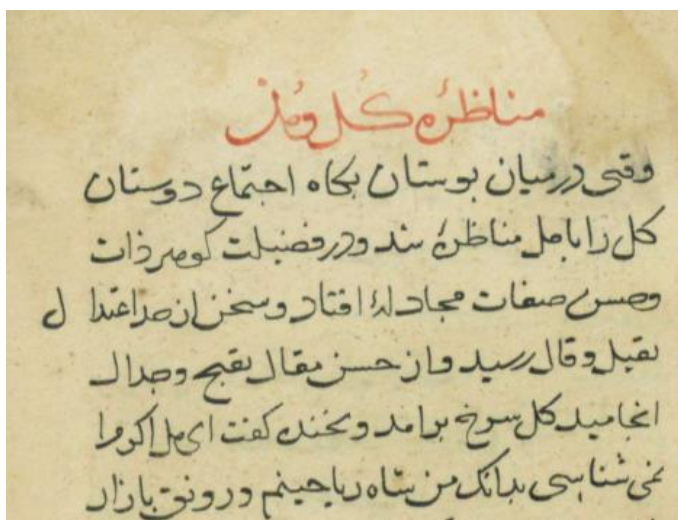 مناظرۀ گل و مل
وقتی در میان بوستان بگاه اجتماع دوستان
کل را با مل مناظرۀ شد و در فضیلت کوهر ذات
وحسن صفات مجادلۀ افتاد و سخن از حد اعتدال
بقیل و قال رسید و از حسن مقال بقبح وجدال
انجامید کل سرخ برآمد و بخنده کفت ای مل اکر مرا
نمی شناسی بدانک من شاه ریاحینم و رونق بازار